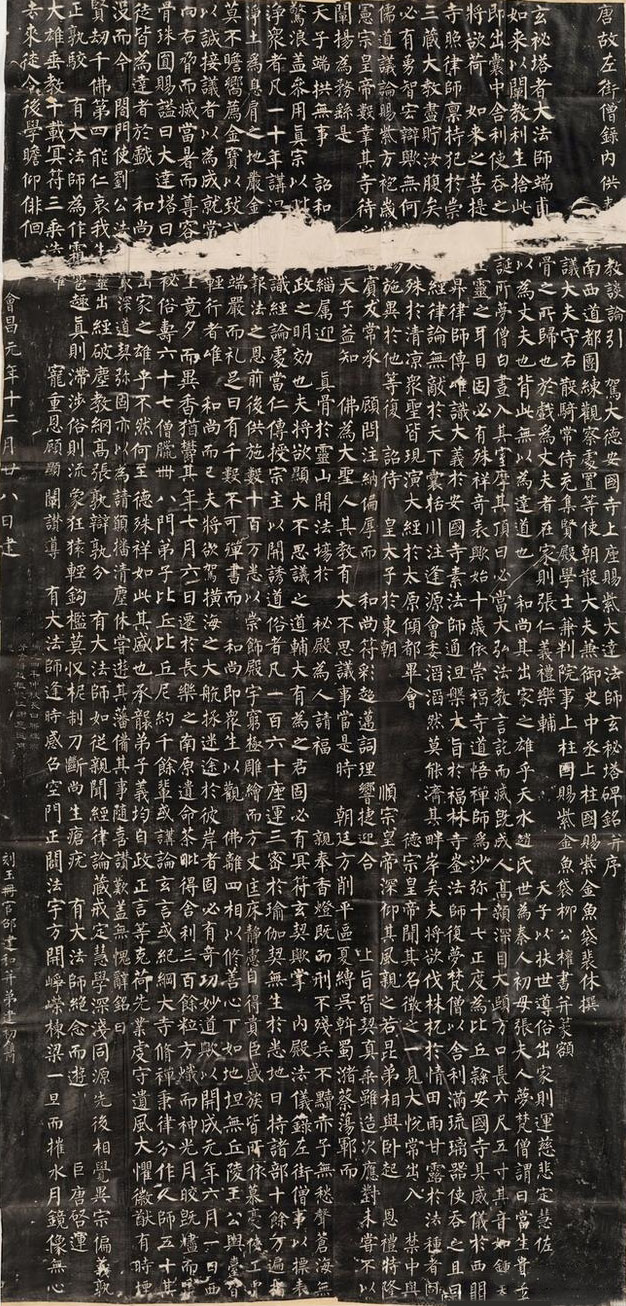 唐故左街僧錄內供奉 教談論引 駕大德安國寺上座賜紫大達法師玄秘塔碑銘并序
南西道都團練觀察處置等使朝散大夫兼御史中丞上柱國賜紫金魚袋裴休撰
議大夫守右散騎常侍充集賢殿學士兼判院事上柱國賜紫金魚袋柳公權書并篆額
玄秘塔者大法師端甫 骨之所歸也於戲為丈夫者在家則張仁義禮樂輔 天子以扶世導俗出家則運慈悲定慧佐
如來以闡教利生捨此 以為丈夫也背此無以為達道也 和尚其出家之雄乎天水趙氏世為秦人初母張夫人夢梵僧謂曰當生貴子
即出囊中舍利使吞之 誕所夢僧白晝入其室摩其頂曰必當大弘法教言訖而滅既成人高顙深目大頤方口長六尺五寸其音如鐘夫
將欲荷 如來之菩提 生靈之耳目固必有殊祥奇表歟始十歲依崇福寺道悟禪師為沙弥十七正度為比丘隸安國寺具威儀於西明
寺照律師稟持犯於崇 昇律師傳唯識大義於安國寺素法師通涅槃大旨於福林寺崟法師復夢梵僧以舍利滿琉璃器使吞之且曰
三藏大教盡貯汝腹矣 經律論無敵於天下囊括川注逢源會委滔滔然莫能濟其畔岸矣夫將欲伐株杌於情田雨甘露於法種者固
必有勇智宏辯歟無何 殊於清涼眾聖皆現演大經於太原傾都畢會 德宗皇帝聞其名徵之一見大悅常出入 禁中與
儒道議論賜紫方袍歲 施異於他等復 詔侍 皇太子於東朝 順宗皇帝深仰其風親之若昆弟相與臥起 恩禮特隆
憲宗皇帝數幸其寺待之 賓友常承 顧問注納偏厚而 和尚符彩超邁詞理響捷迎合 上旨皆契真乘雖造次應對未嘗不以
闡揚為務繇是 天子益知 佛為大聖人其教有大不思議事當是時 朝廷方削平區夏縛吳斡蜀潴蔡蕩鄆而
天子端拱無事 詔和 緇屬迎 真骨於靈山開法場於 秘殿為人請福 親奉香燈既而刑不殘兵不黷赤子無愁聲蒼海無
驚浪蓋參用真宗以毗 政之明効也夫將欲顯大不思議之道輔大有為之君固必有冥符玄契歟掌 內殿法儀錄左街僧事以摽表
淨眾者凡一十年講涅 識經論處當仁傳授宗主以開誘道俗者凡一百六十座運三密於瑜伽契無生於悉地日持諸部十餘万遍指
淨土為息肩之地嚴金 報法之恩前後供施數十百万悉以崇飾殿宇窮極雕繪而方丈匡床靜慮自得貴臣盛族皆所依慕豪俠工賈
莫不瞻嚮薦金寶以致 端嚴而礼足日有千數不可殫書而 和尚即眾生以觀 佛離四相以修善心下如地坦無丘陵王公輿臺皆
以誠接議者以為成就常 輕行者唯 和尚而已夫將欲駕橫海之大航拯迷途於彼岸者固必有奇功妙道歟以開成元年六月一日西
向右脅而滅當暑而尊容 生竟夕而異香猶鬱其年七月六日遷於長樂之南原遺命荼毗得舍利三百餘粒方熾而神光月皎既燼而靈
骨珠圓賜謚曰大達塔曰 秘俗壽六十七僧臘卌八門弟子比丘比丘尼約千餘輩或講論玄言或紀綱大寺脩禪秉律分作人師五十其
徒皆為達者於戲 和尚 出家之雄乎不然何至德殊祥如此其盛也承襲弟子義均自政正言等克荷先業虔守遺風大懼徽猷有時堙
沒而今 閤門使劉公法 深道契弥固亦以為請願播清塵休嘗遊其藩備其事隨喜讚歎蓋無愧辭銘曰
賢劫千佛第四能仁哀我生靈出經破塵教網高張孰辯孰分 有大法師如從親聞經律論藏戒定慧學深淺同源先後相覺異宗偏義孰
正孰駁 有大法師為作霜雹趣真則滯涉俗則流象狂猿輕鉤檻莫收柅制刀斷尚生瘡疣 有大法師絕念而遊 巨唐啟運
大雄垂教千載冥符三乘迭耀 寵重恩顧顯闡讚導 有大法師逢時感召空門正闢法宇方開崢嶸棟梁一旦而摧水月鏡像無心
去來徒令後學瞻仰徘徊
會昌元年十二月廿八日建 刻玉冊官邵建和并弟建初鐫